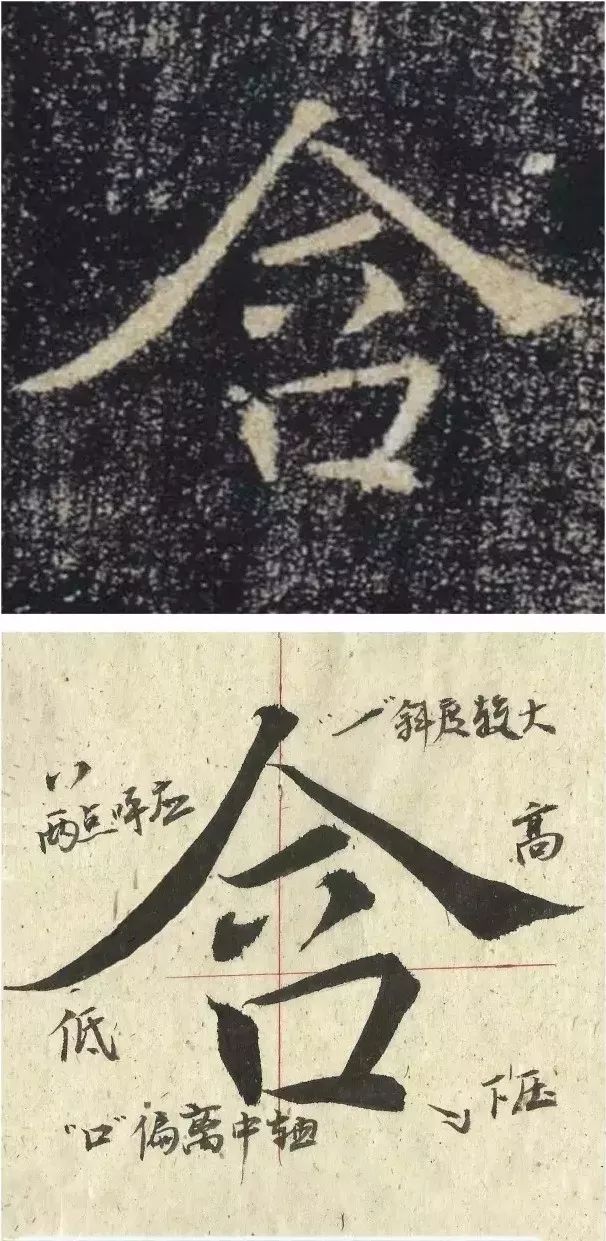 含
含
"一"斜度较大
两点呼应
高
低
"口"偏离中轴
下压